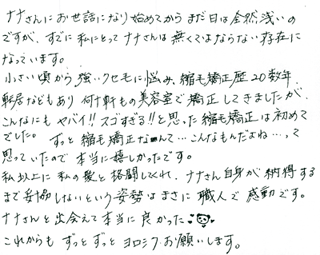 ナナさんにお世話になり始めてからまだ日は全然浅いの
ですが、すでに私にとってナナさんは無くてはならない存在に
なっています。
小さい頃から強いクセ毛に悩み、縮毛矯正歴20数年、
転居などもあり何十軒もの美容室で矯正してきましたが、
こんなにもヤバイ!!スゴすぎる!!と思った縮毛矯正は初めて
でした。ずっと縮毛矯正なんて…こんなもんだよね…って
思っていたので本当に嬉しかったです。
私以上に私の髪と格闘してくれ、ナナさん自身が納得する
まで妥協しないという姿勢はまさに職人で感動です。
ナナさんと出会えて本当に良かった
これからもずっとずっとヨロシクお願いします。